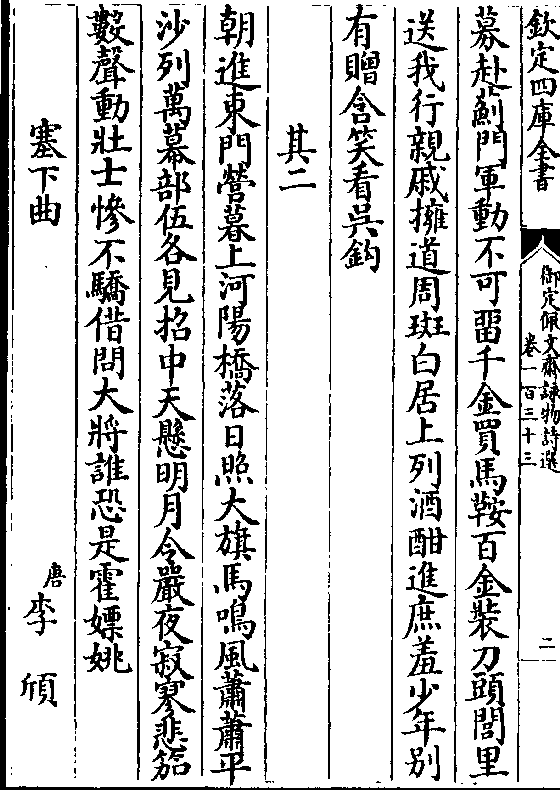 欽定四庫全書
御定佩文齋詠物詩選
卷一百三十三
二
募赴薊門軍動不可留千金買馬鞍百金裝刀頭閭里
送我行親戚擁道周斑白居上列酒酣進庶羞少年別
有贈含笑看吳鈎
其二
朝進東門營暮上河陽橋落日照大旗馬鳴風蕭蕭平
沙列萬幕部伍各見招中天懸明月令嚴夜寂寥悲笳
數聲動壯士慘不驕借問大將誰恐是霍嫖姚
塞下曲
唐李頎